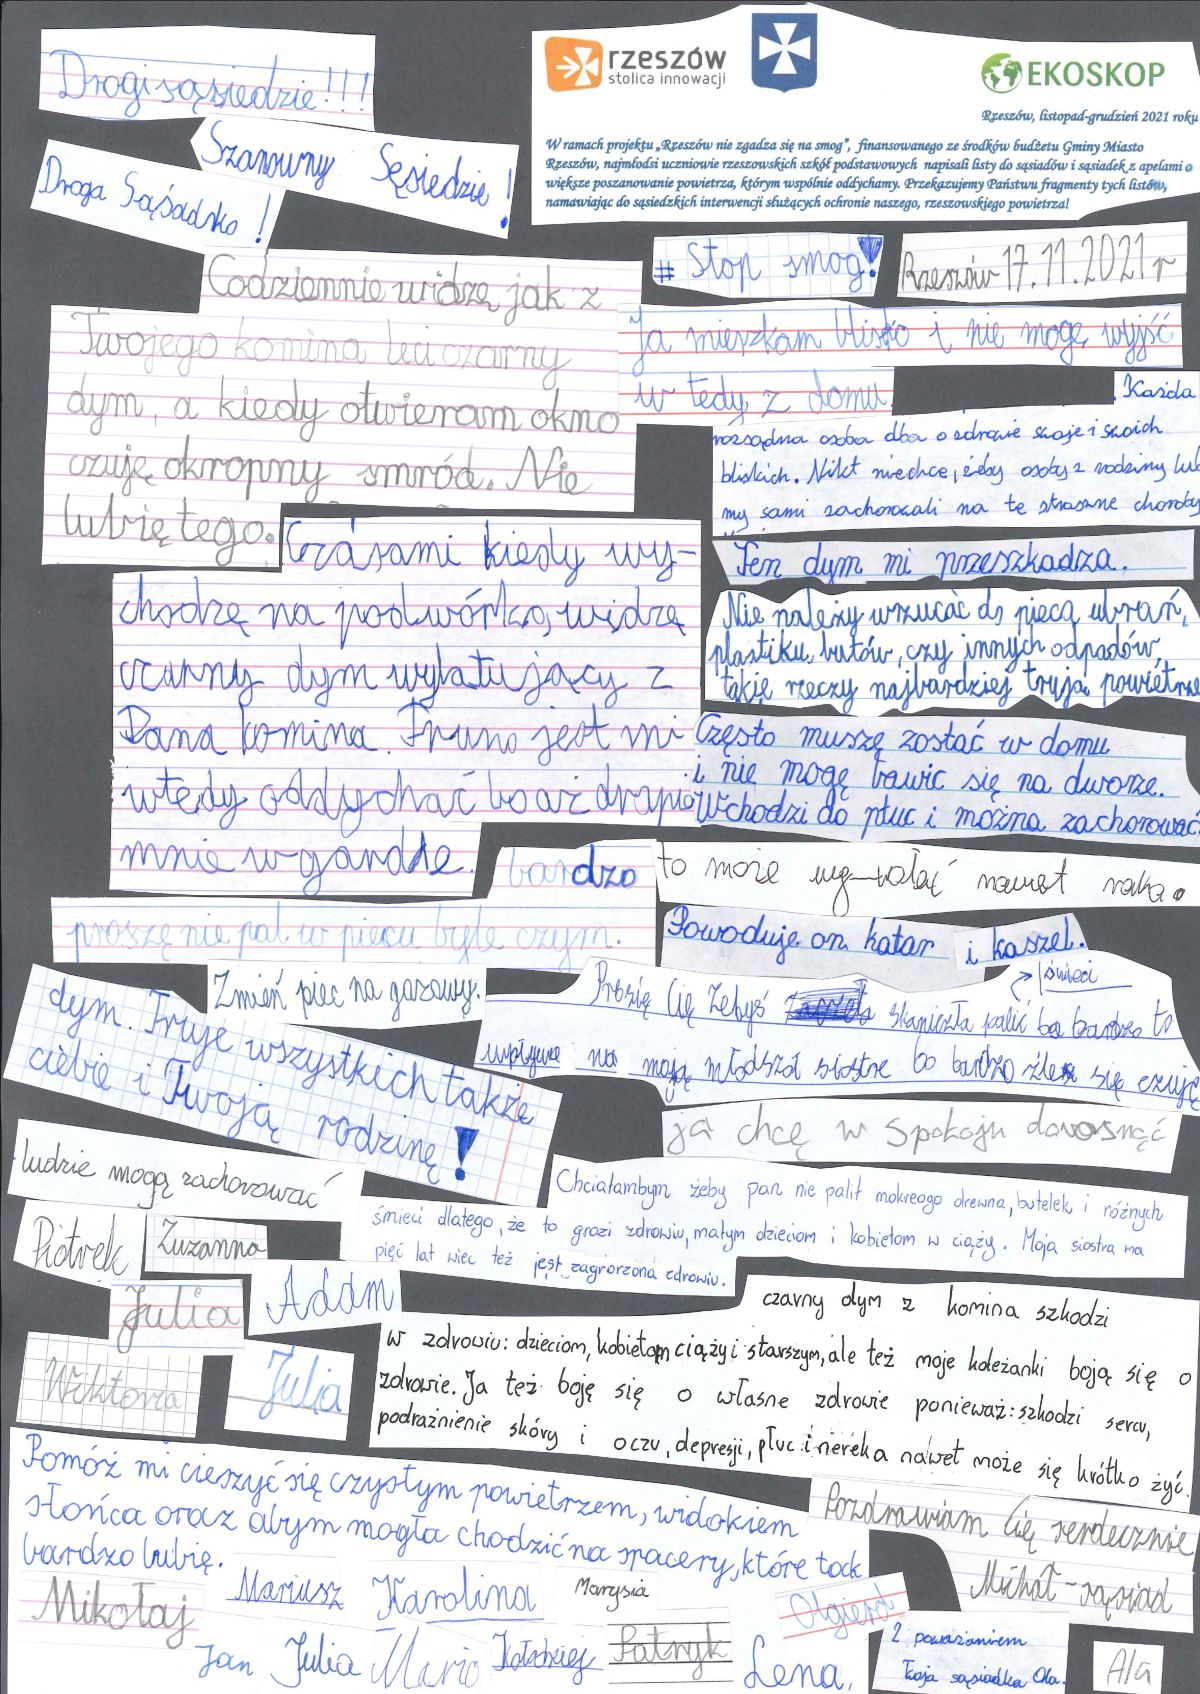 Drogi sąsiedzie!!!
Szanowny Sęsiedzie!
Droga Sąsiadko!
rzeszów
stolica innowacji
EKOSKOP
Rzeszów, listopad-grudzień 2021 roku
W ramach projektu „Rzeszów nie zgadza się na smog”, finansowanego ze środków budżetu Gminy Miasto
Rzeszów, najmłodsi uczniowie rzeszowskich szkół podstawowych napisali listy do sąsiadów i sąsiadek z apelami o
większe poszanowanie powietrza, którym wspólnie oddychamy. Przekazujemy Państwu fragmenty tych listów,
namawiając do sąsiedzkich interwencji służących ochronie naszego, rzeszowskiego powietrza!
# Stop smog!
Rzeszów 17.11.2021 r
Codziennie widzę jak z
Twojego komina leci czarny
dym, a kiedy otwieram okno
czuję okropny smród. Nie
lubię tego.
Ja mieszkam blisko i nie mogę wyjść
w tedy z domu
. Każda
rozsądna osoba dba o zdrowie swoje i swoich
bliskich. Nikt niechce, żeby osoby z rodziny lub
my sami zachorowali na te straszne choroby
Czásami kiedy wy-
chodzę na podwórko, widzę
czarny dym wylatujący z
Pana komina. Truno jest mi
wtedy oddychać bo aż drapie
mnie w gardle.
Ten dym mi przeszkadza.
Nie należy wrzucać do pieca ubrań,
plastiku, butów, czy innych odpadów,
takie rzeczy najbardziej trują powietrze
Często muszę zostać w domu
i nie mogę bawic się na dworze.
Wchodzi do płuc i można zachorować
bardzo
proszę nie pal w piecu byle czym.
to może wy-wołać nawet raka.
Powoduje on katar i kaszel.
Zmień piec na gazowy.
dym. Truje wszystkich także
ciebie i Twoją rodzinę!
śmieci
Proszę Cię żebyś skończyła palić bo bardzo to
wpływa na moją młodszą siostre bo bardzo źle się czuję
ja chcę w spokoju dorosnąć
ludzie mogą zachorować
Chciałambym żeby pan nie palił mokreogo drewna, butelek i różnych
śmieci dlatego, że to grozi zdrowiu, małym dzieciom i kobietom w ciąży. Moja siostra ma
pięć lat wiec też jest zagrorzona zdrowiu.
Piotrek
Zuzanna
Julia
Adam
Wiktoria
Julia
czarny dym z komina szkodzi
w zdrowiu: dzieciom, kobietom ciąży i starszym, ale też moje koleżanki boją się o
zdrowie. Ja też boję się o własne zdrowie ponieważ: szkodzi sercu,
podrażnienie skóry i oczu, depresji, płuc i nereka nawet może się krótko żyć.
Pomóż mi cieszyć się czystym powietrzem, widokiem
słońca oraz abym mogła chodzić na spacery, które tak
bardzo lubię.
Pozdrawiam Cię serdecznie
Michał - sąsiad
Mikołaj
Mariusz
Karolina
Marysia
Olgierd
Jan
Julia
Mario
Patryk
Lena.
Z poważaniem
Twoja sąsiadka Ola.
Ala